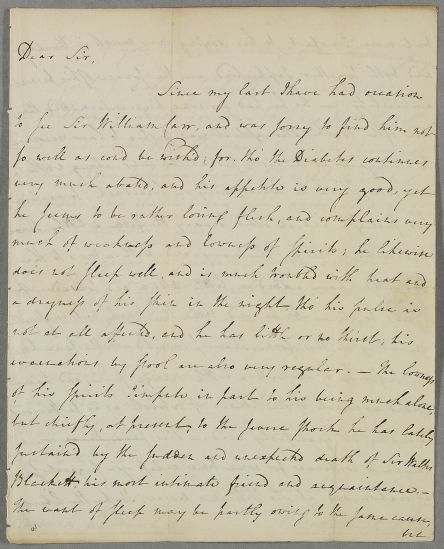 Dear Sir,
Since my last I have had occasion
to see Sir William Carr, and was sorry to find him not
so well as coud be wishd; for, tho' the Diabetes continues
very much abated, and his appetite is very good, yet
he seems to be rather losing flesh, and complains very
much of weakness and lowness of Spirits; he likewise
does not sleep well, and is much troubled with heat and
a dryness of his skin in the night tho' his pulse is
not at all affected, and he has little or no thirst; his
evacuations by stool are also very regular. — The lowness
of his Spirits I impute in part to his being much alone,
but chiefly, at present, to the severe shock he has lately
sustain'd by the sudden and unexpected death of Sir Walter
Blackett his most intimate friend and acquaintance. —
The want of sleep may be partly owing to the same cause,
but